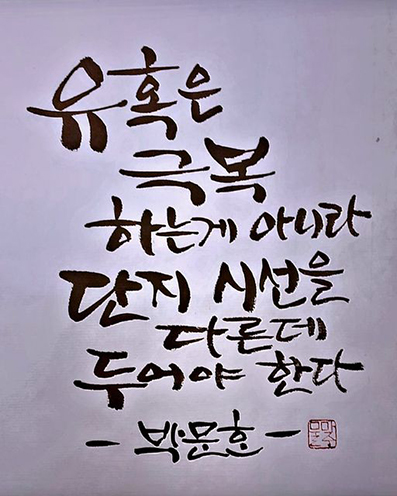 유혹은
극복
하는게 아니라
단지 시선을
다른데
두어야 한다
- 박문호 -